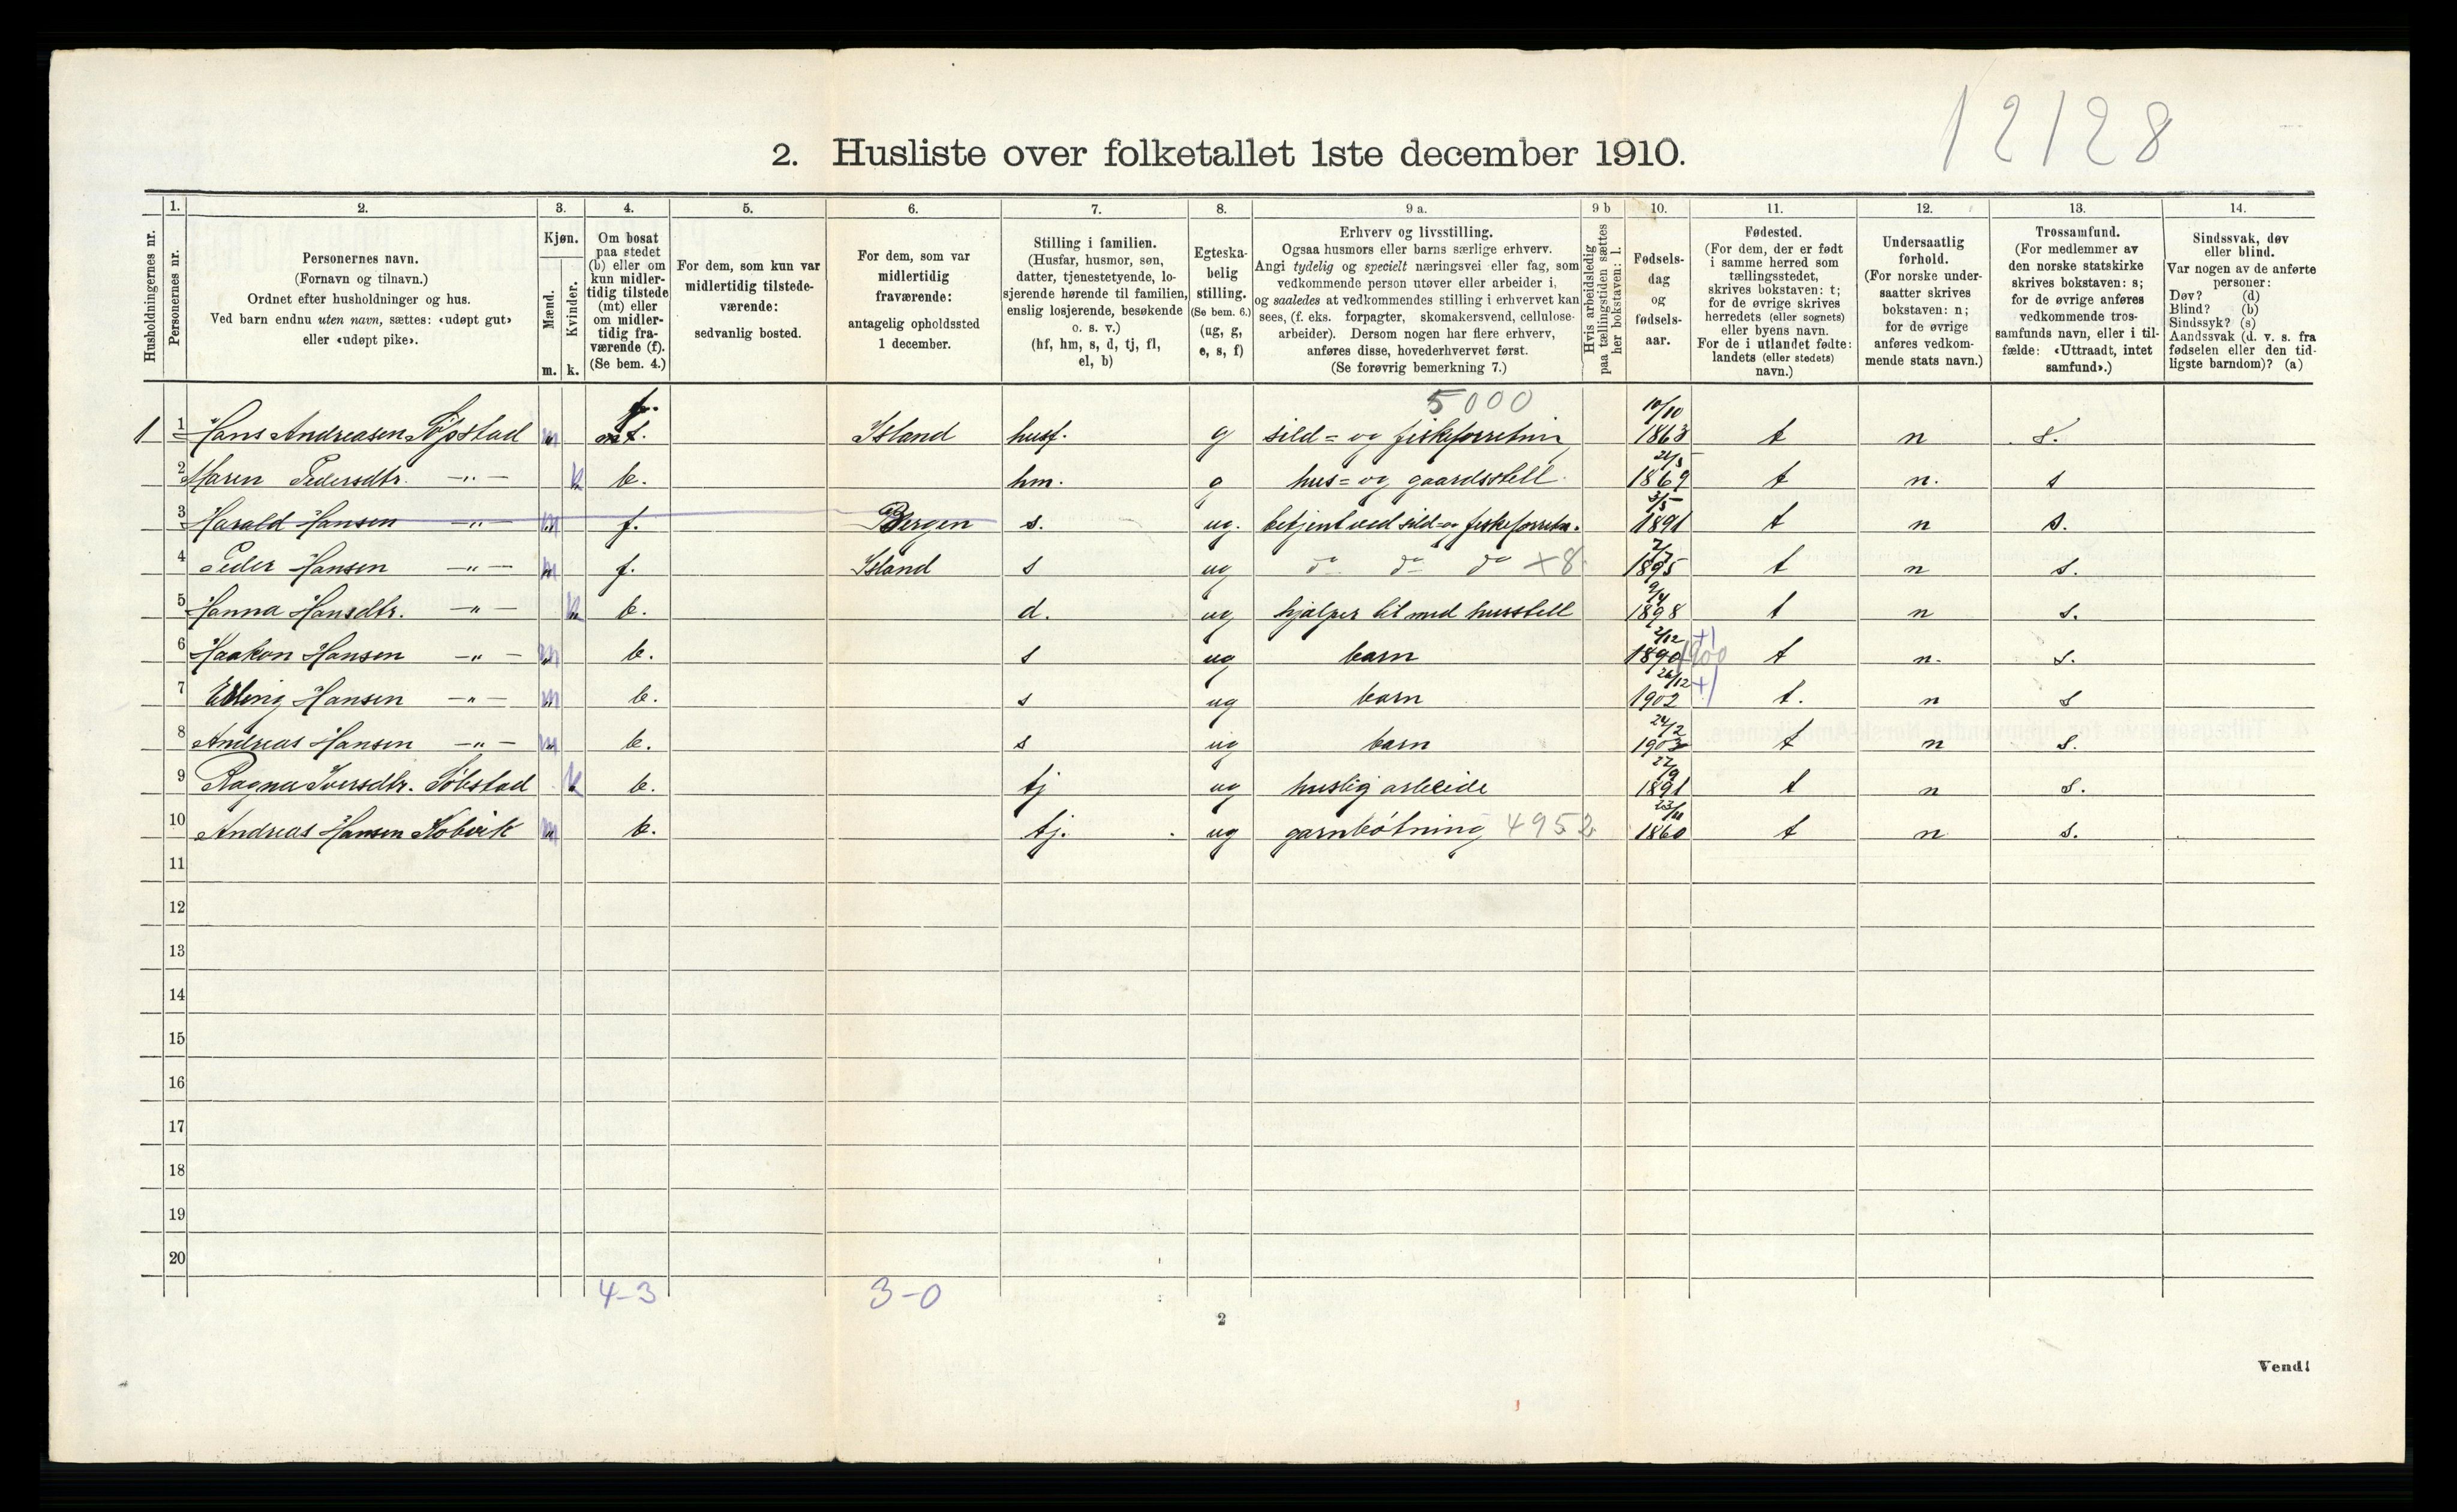 12128
2. Husliste over folketallet 1ste december 1910.
1. 2. 3. 4. 5. 6. 7. 8. 9 a. 9 b 10. 11. 12. 13. 14.
Husholdningernes nr.
Personernes nr.
Personernes navn.
(Fornavn og tilnavn.)
Ordnet efter husholdninger og hus.
Ved barn endnu uten navn, sættes: «udøpt gut»
eller «udøpt pike».
Kjøn.
Mænd.
Kvinder.
m. k.
Om bosat
paa stedet
(b) eller om
kun midler-
tidig tilstede
(mt) eller
om midler-
tidig fra-
værende (f).
(Se bem. 4.)
For dem, som kun var
midlertidig tilstede-
værende:
sedvanlig bosted.
For dem, som var
midlertidig
fraværende:
antagelig opholdssted
1 december.
Stilling i familien.
(Husfar, husmor, søn,
datter, tjenestetyende, lo-
sjerende hørende til familien,
enslig losjerende, besøkende
o. s. v.)
(hf, hm, s, d, tj, fl,
el, b)
Egteska-
belig
stilling.
(Se bem. 6.)
(ug, g,
e, s, f)
Erhverv og livsstilling.
Ogsaa husmors eller barns særlige erhverv.
Angi tydelig og specielt næringsvei eller fag, som
vedkommende person utøver eller arbeider i,
og saaledes at vedkommendes stilling i erhvervet kan
sees, (f. eks. forpagter, skomakersvend, cellulose-
arbeider). Dersom nogen har flere erhverv,
anføres disse, hovederhvervet først.
(Se forøvrig bemerkning 7.)
Hvis arbeidsledig
paa tællingstiden sættes
her bokstaven: l.
Fødsels-
dag
og
fødsels-
aar.
Fødested.
(For dem, der er født
i samme herred som
tællingsstedet,
skrives bokstaven: t;
for de øvrige skrives
herredets (eller sognets)
eller byens navn.
For de i utlandet fødte:
landets (eller stedets)
navn.)
Undersaatlig
forhold.
(For norske under-
saatter skrives
bokstaven: n;
for de øvrige
anføres vedkom-
mende stats navn.)
Trossamfund.
(For medlemmer av
den norske statskirke
skrives bokstaven: s;
for de øvrige anføres
vedkommende tros-
samfunds navn, eller i til-
fælde: «Uttraadt, intet
samfund».)
Sindssvak, døv
eller blind.
Var nogen av de anførte
personer:
Døv? (d)
Blind? (b)
Sindssyk? (s)
Aandssvak (d. v. s. fra
fødselen eller den tid-
ligste barndom)? (a)
5000
1 1 Hans Andreasen m f. mt. Island husf. g sild= og fiskeforretnin 10/10 1863 t n s.
2 Maren Pedersdtr. —"— k b. hm. g hus= og gaardsstell 1869 t n. s
3 Harald Hansen —"— m f. Bergen s. ug. betjent ved sild= og fiskeforretn. 3/5 1891 t n s.
4 Peder Hansen —"— m f. Island s ug do do do +8 2/7 1895 t n s.
5 Hanna Hansdtr. —"— k b. d. ug hjælper til med husstell 9/4 1898 t n s.
6 Haakon Hansen —"— m b. s ug barn 2/12 1890 1900 +1 t n. s.
7 Erling Hansen —"— m b. s ug barn 26/12 1902 +1 t. n s
8 Andreas Hansen —"— m b. s ug barn 24/12 1903 t n s.
9 Ragna Iversdtr. Søbstad k b. tj ug huslig arbeide 27/9 1891 t n s.
10 Andreas Hansen m b. tj. ug garnbøtning 4952 23/11 1860 t n s.
11
12
13
14
15
16
17
18
19
20
4-3 3-0
2
Vend!